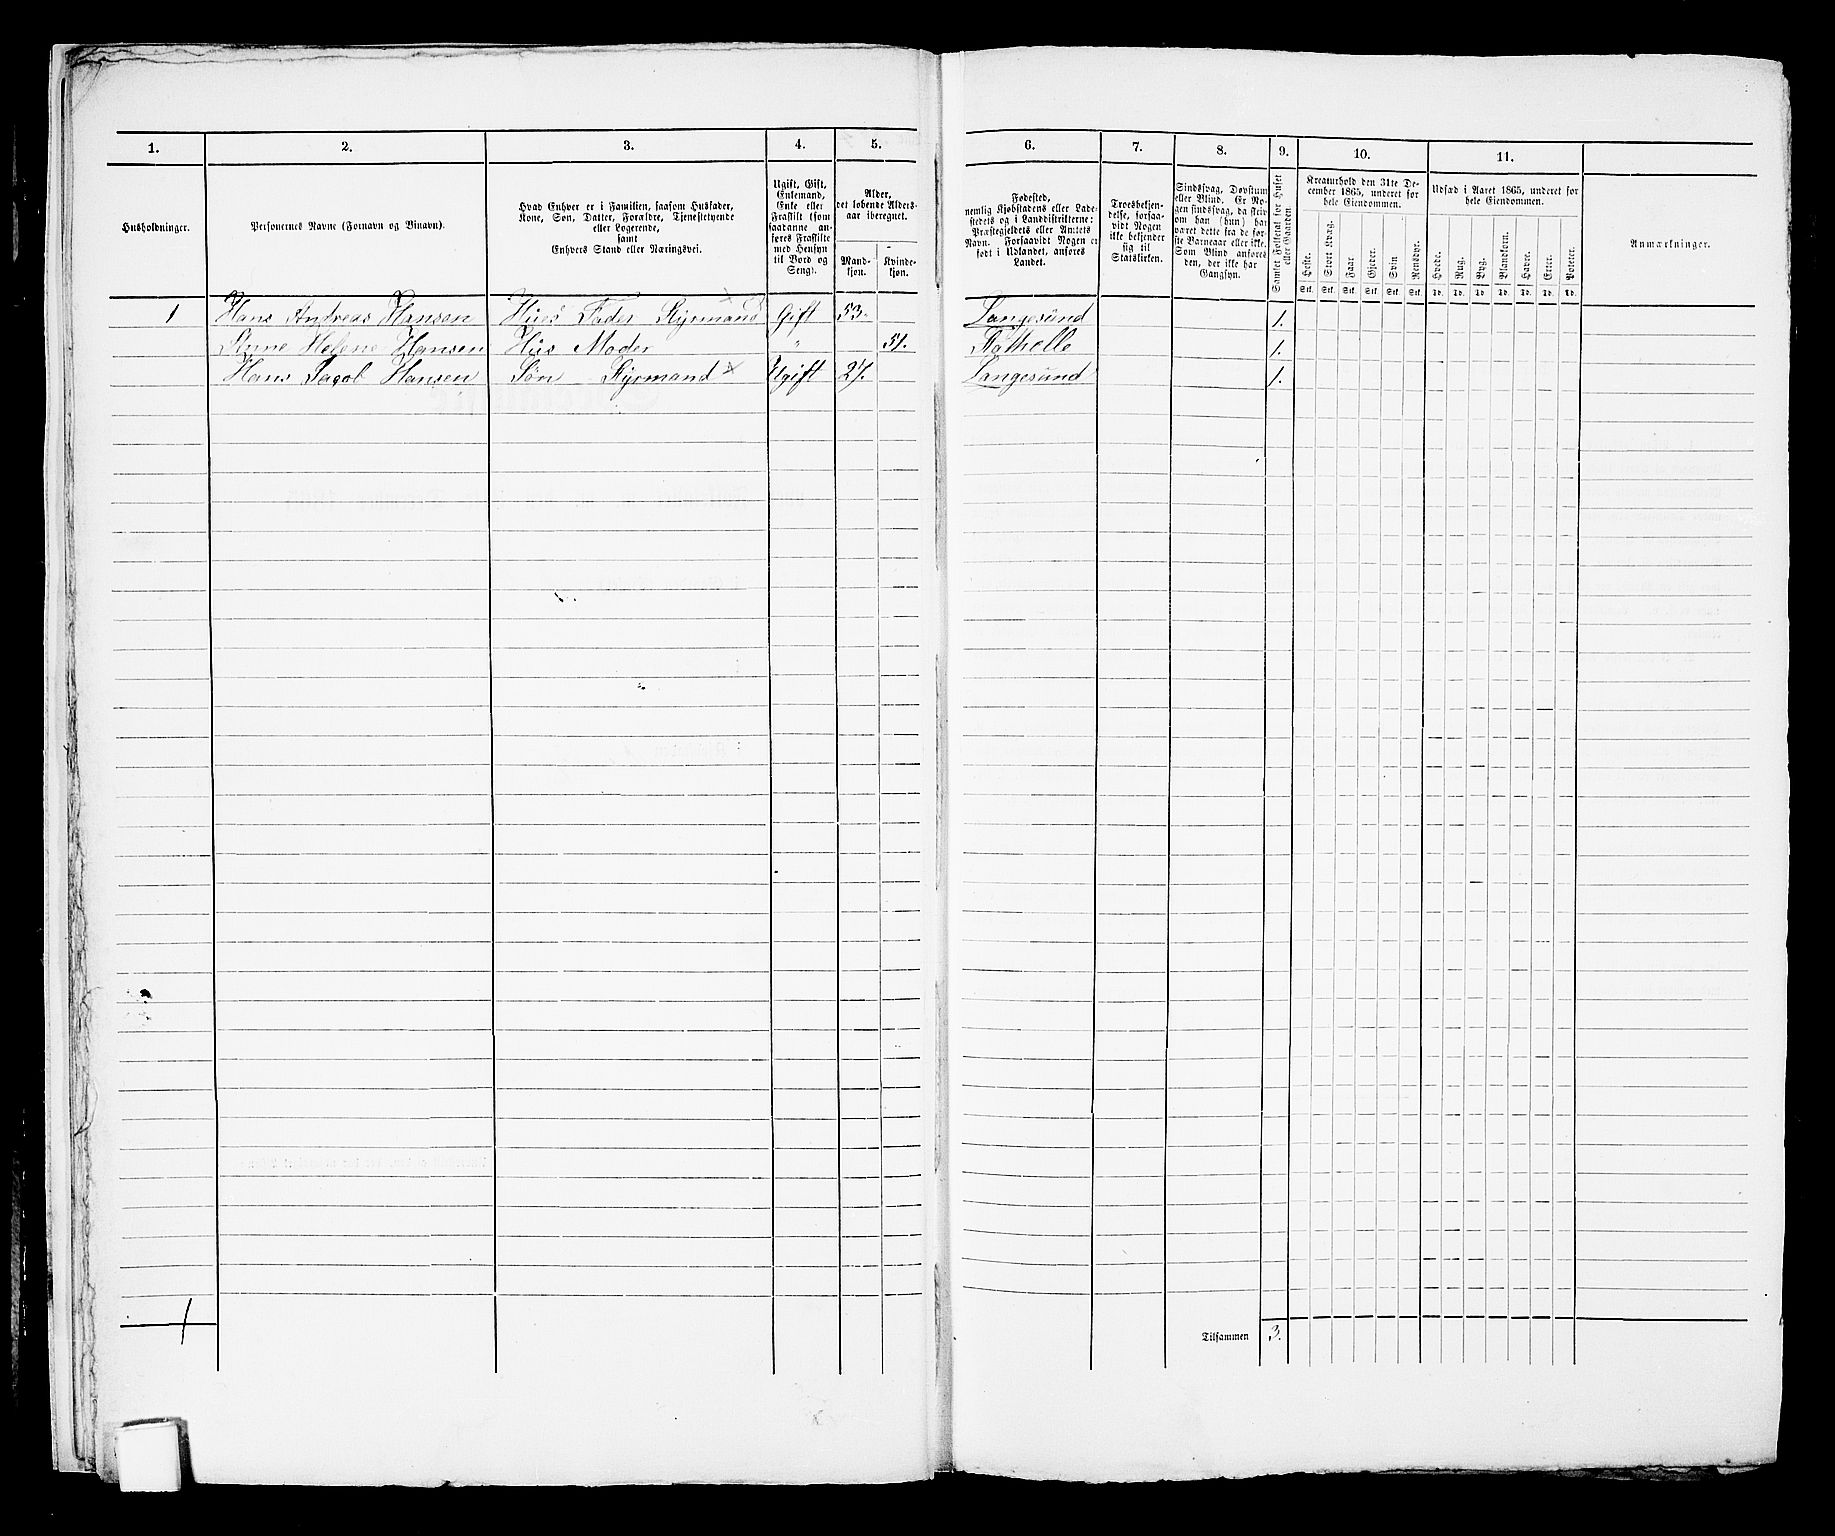 1. 2. 3. 4. 5. 6. 7. 8. 9. 10. 11.
Husholdninger.
Personernes Navne (Fornavn og Binavn).
Hvad Enhver er i Familien, saasom Husfader,
Kone, Søn, Datter, Forældre, Tjenestetyende
eller Logerende,
samt
Enhvers Stand eller Næringsvei.
Ugift, Gift,
Enkemand,
Enke eller
Fraskilt (som
saadanne an-
føres Fraskilte
med Hensyn
til Bord og
Seng).
Alder,
det løbende Alders-
aar iberegnet.
Mand-
kjøn.
Kvinde-
kjøn.
Fødested,
nemlig Kjøbstadens eller Lade-
stedets og i Landdistrikterne:
Præstegjeldets eller Amtets
Navn. Forsaavidt Nogen er
født i Udlandet, anføres
Landet.
Troesbekjen-
delse, forsaa-
vidt Nogen
ikke bekjender
sig til
Statskirken.
Sindssvag, Døvstum
eller Blind. Er No-
gen sindssvag, da skriv
om han (hun) har
været dette fra de før-
ste Barneaar eller ikke.
Som Blind anføres
den, der ikke har
Gangsyn.
Samlet Folketal for Huset
eller Gaarden
Kreaturhold den 31te De-
cember 1865, underet for
hele Eiendommen.
Heste. Stort Kvæg. Faar. Gjeder. Svin Rensdyr.
Stk. Stk. Stk. Stk. Stk. Stk.
Udsæd i Aaret 1865, underet for
hele Eiendommen.
Hvede. Rug. Byg. Blandkorn. Havre. Erter. Poteter.
Td. Td. Td. Td. Td. Td. Td.
Anmærkninger.
1 Hans Andreas Hansen Hues Fader Styrmand Gift 53. Langesund 1.
Anne Helene Hansen Hus Moder " 51. Stathelle 1.
Hans Jacob Hansen Søn Styrmand Ugift 27. Langesund 1.
1 Tilsammen 3.